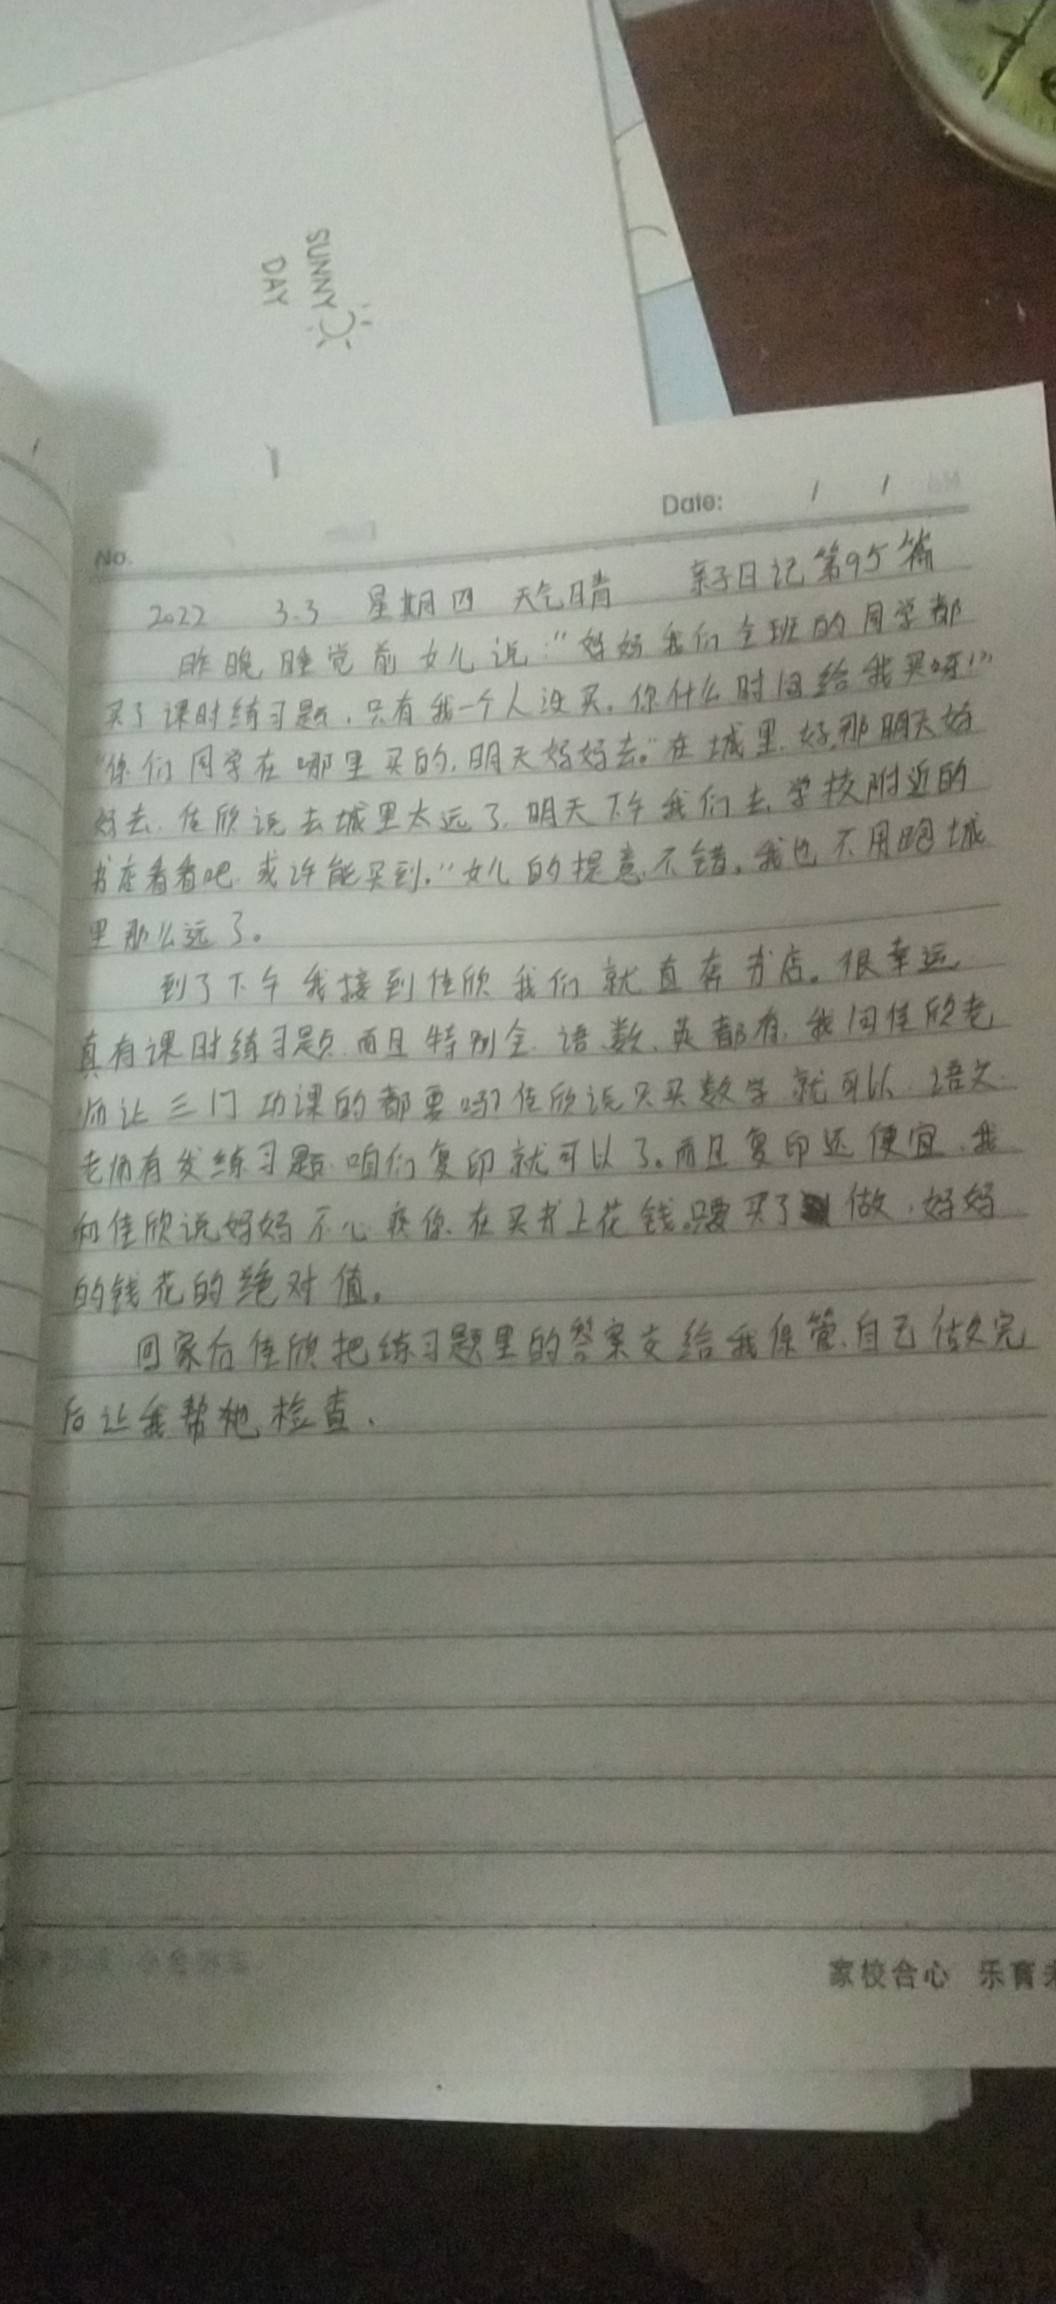 SUNNY
DAY
Date: / /
No.
2022 3.3 星期四 天气晴 亲子日记第95篇
昨晚睡觉前女儿说:"妈妈我们全班的同学都
买了课时练习题,只有我一个人没买。你什么时间给我买呀!"
"你们同学在哪里买的,明天妈妈去。"在城里.好,那明天妈
妈去.佳欣说去城里太远了.明天下午我们去学校附近的
书店看看吧.或许能买到."女儿的提意不错。我也不用跑城
里那么远了。
到了下午我接到佳欣我们就直奔书店。很幸运
真有课时练习题.而且特别全.语、数、英都有.我问佳欣老
师让三门功课的都要吗?佳欣说只买数学就可以.语文
老师有发练习题.咱们复印就可以了。而且复印还便宜.我
和佳欣说妈妈不心疼你在买书上花钱。只要买了做,妈妈
的钱花的绝对值。
回家后佳欣把练习题里的答案交给我保管.自己做完
后让我帮她检查.
家校合心 乐育